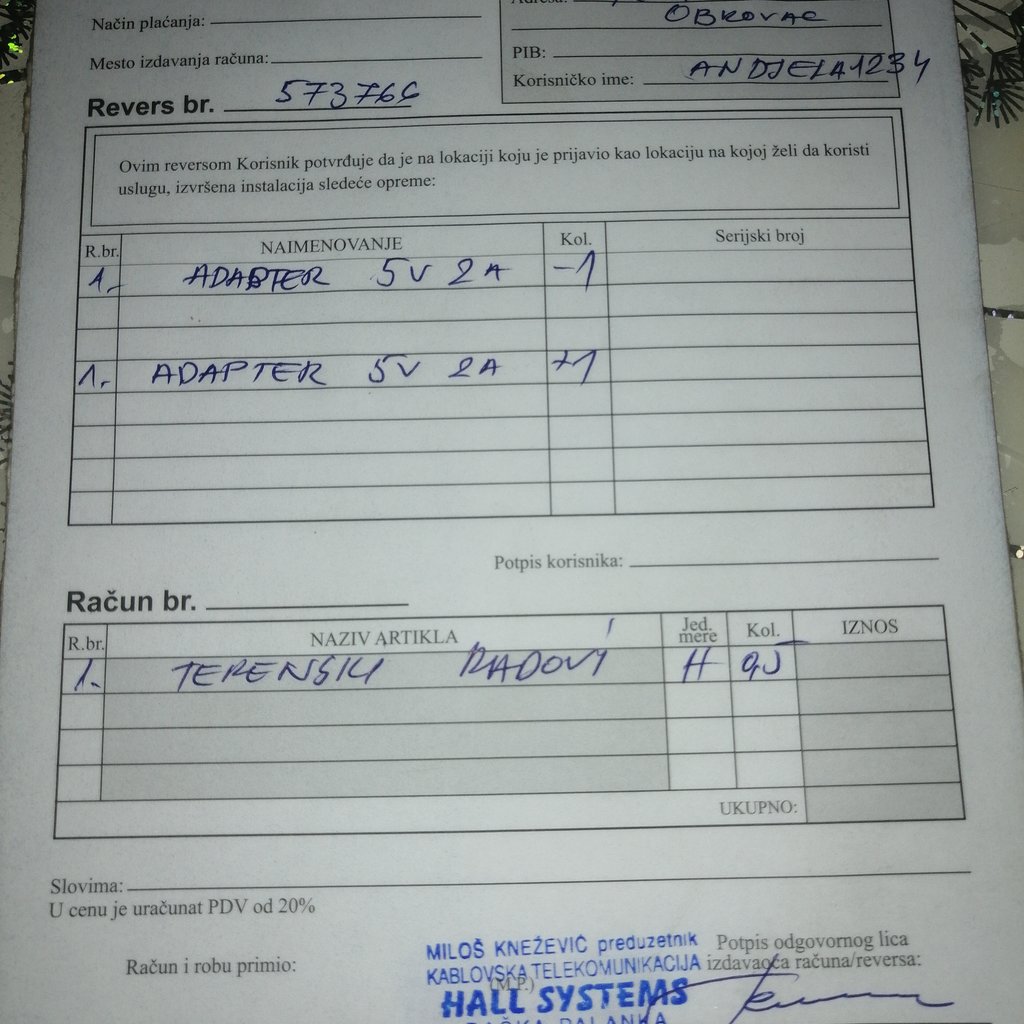 Način plaćanja:
Adresa:
OBROVAC
Mesto izdavanja računa:
PIB:
Korisničko ime: ANDJELA1234
Revers br. 573766
Ovim reversom Korisnik potvrđuje da je na lokaciji koju je prijavio kao lokaciju na kojoj želi da koristi
uslugu, izvršena instalacija sledeće opreme:
R.br. NAIMENOVANJE Kol. Serijski broj
1. ADAPTER 5V 2A -1
1. ADAPTER 5V 2A +1
Potpis korisnika:
Račun br.
R.br. NAZIV ARTIKLA Jed. mere Kol. IZNOS
1. TERENSKI RADOVI H 0,5
UKUPNO:
Slovima:
U cenu je uračunat PDV od 20%
Račun i robu primio:
MILOŠ KNEŽEVIĆ preduzetnik
KABLOVSKA TELEKOMUNIKACIJA
(M.P.)
HALL SYSTEMS
BAČKA PALANKA
Potpis odgovornog lica
izdavaoca računa/reversa: